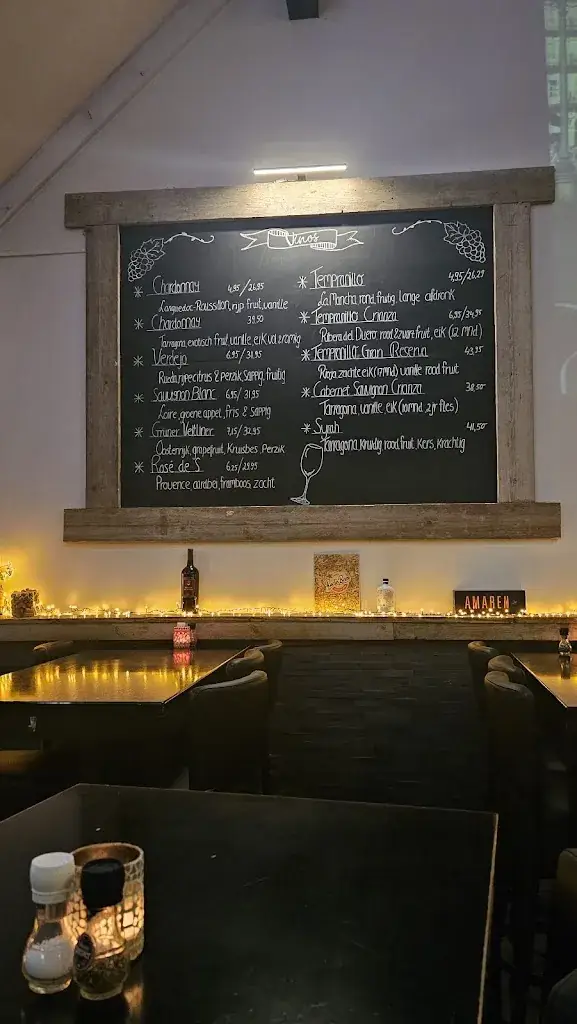 Vinos
Chardonnay 4,95/26,95
Languedoc-Roussillon, rijp fruit, vanille
Chardonnay 39,50
Tarragona, exotisch fruit, vanille, eik vol & romig
Verdejo 6,95/31,95
Rueda, rijpe citrus & perzik, sappig, fruitig
Sauvignon Blanc 6,95/31,95
Loire, groene appel, fris & sappig
Grüner Veltliner 7,15/32,95
Oostenrijk, grapefruit, Kruisbes, Perzik
Rosé de S. 6,25/28,95
Provence, aardbei, framboos, zacht
Tempranillo 4,95/26,29
La Mancha, rond, fruitig, lange afdronk
Tempranillo Crianza 6,95/34,95
Ribera del Duero, rood & zware fruit, eik (12 mnd)
Tempranillo Gran Reserva 43,95
Rioja, zachte eik, vanille rood fruit
Cabernet Sauvignon Crianza 38,50
Tarragona, vanille, eik (10 mnd)
Syrah 41,50
Tarragona, Kruidig rood fruit, kers, krachtig
AMAREN